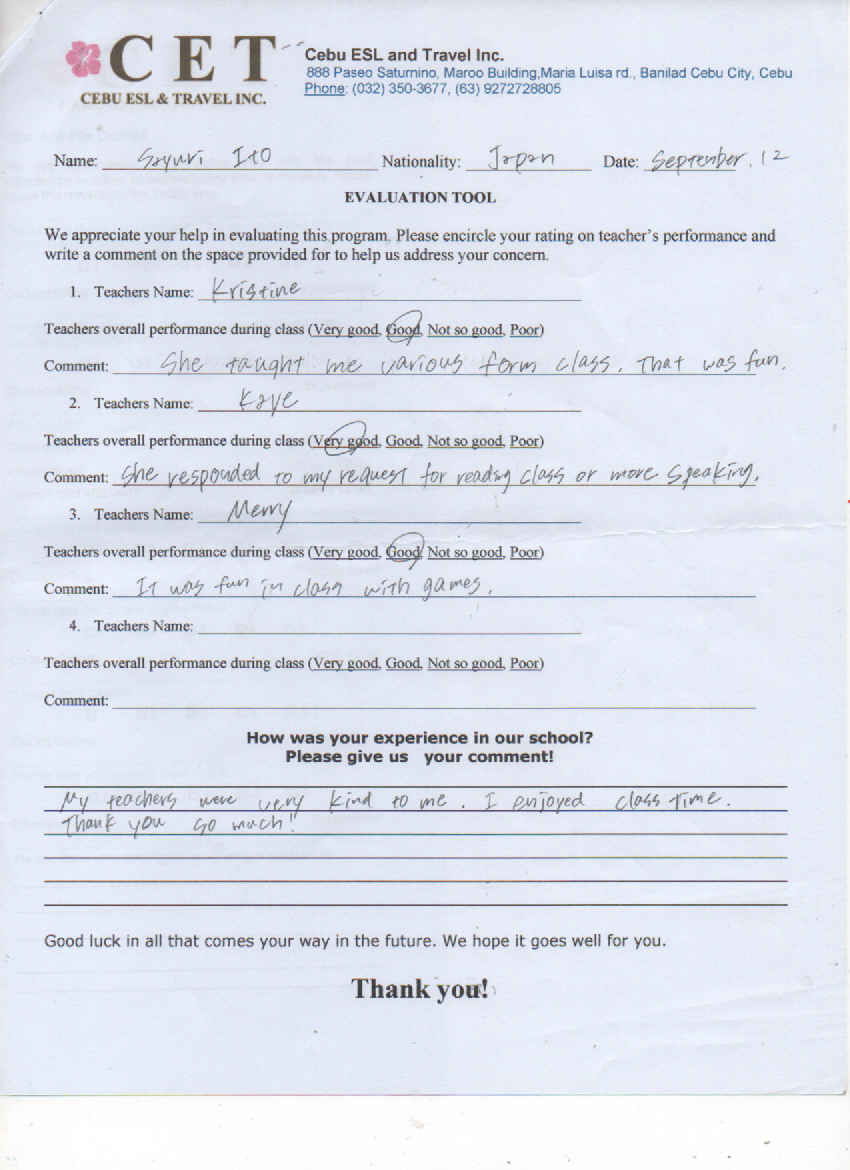 CET
CEBU ESL & TRAVEL INC.
Cebu ESL and Travel Inc.
888 Paseo Saturnino, Maroo Building,Maria Luisa rd., Banilad Cebu City, Cebu
Phone: (032) 350-3677, (63) 9272728805
Name: Sayuri Ito Nationality: Japan Date: September. 12
EVALUATION TOOL
We appreciate your help in evaluating this program. Please encircle your rating on teacher's performance and
write a comment on the space provided for to help us address your concern.
1. Teachers Name: Kristine
Teachers overall performance during class (Very good, Good, Not so good, Poor)
Comment: She taught me various form class. That was fun.
2. Teachers Name: Kaye
Teachers overall performance during class (Very good, Good, Not so good, Poor)
Comment: She responded to my request for reading class or more speaking.
3. Teachers Name: Merry
Teachers overall performance during class (Very good, Good, Not so good, Poor)
Comment: It was fun in class with games.
4. Teachers Name:
Teachers overall performance during class (Very good, Good, Not so good, Poor)
Comment:
How was your experience in our school?
Please give us your comment!
My teachers were very kind to me. I enjoyed class time.
Thank you so much!!
Good luck in all that comes your way in the future. We hope it goes well for you.
Thank you!